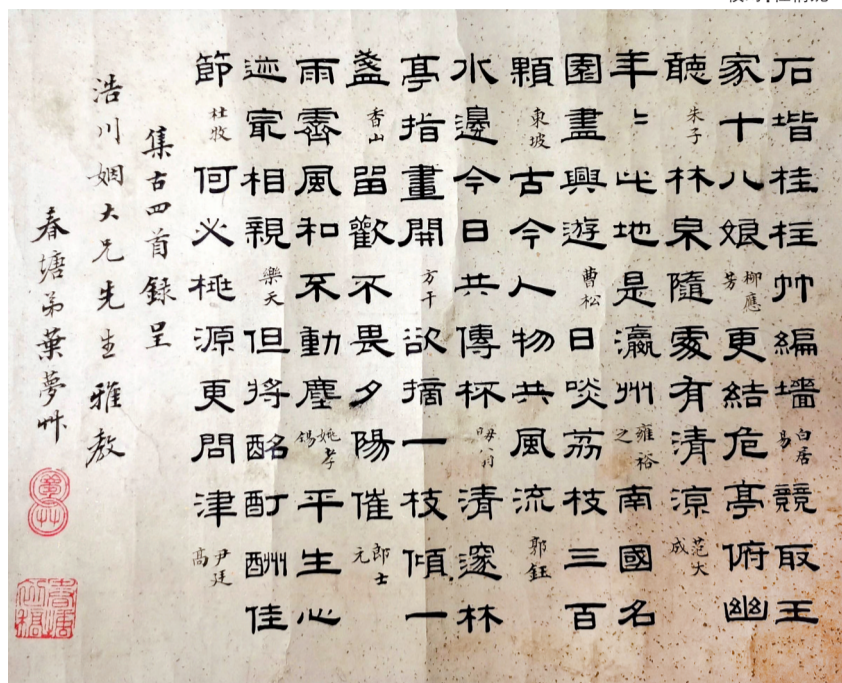 石堦桂柱竹編墻白居易競取王
家十八娘柳應芳更結危亭俯幽
聽朱子林泉隨處有清涼范大成
年〻此地是瀛州雍裕之南國名
園盡興遊曹松日啖荔枝三百
顆東坡古今人物共風流郭鈺
水邊今日共傳杯晦翁清邃林
亭指畫開方干欲摘一枝傾一
盞香山留歡不畏夕陽催郎士元
雨霽風和不動塵姚孝錫平生心
迹寂相親樂天但将酩酊酬佳
節杜牧何必桃源更問津尹廷高
集古四首録呈
浩川姻大兄先生雅教
春塘弟葉夢艸
夢艸